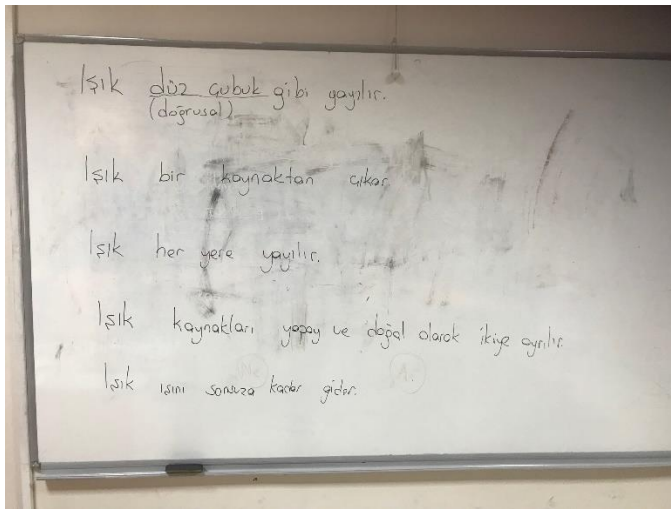 Işık düz çubuk gibi yayılır.
(doğrusal)
Işık bir kaynaktan çıkar
Işık her yere yayılır.
Işık kaynakları yapay ve doğal olarak ikiye ayrılır.
Işık ışını sonsuza kadar gider.